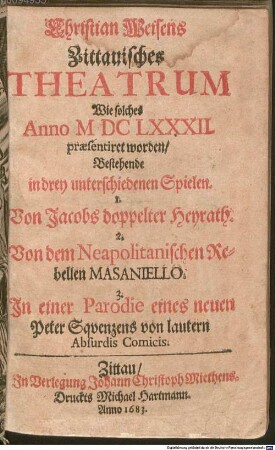 Christian Weisens
Zittauisches
THEATRUM
Wie solches
Anno M DC LXXXII.
præsentiret worden/
Bestehende
in drey unterschiedenen Spielen.
1.
Von Jacobs doppelter Heyrath.
2.
Von dem Neapolitanischen Re-
bellen MASANIELLO.
3.
In einer Parodie eines neuen
Peter Sqvenzens von lautern
Absurdis Comicis.
Zittau/
In Verlegung Johann Christoph Miethens.
Druckts Michael Hartmann.
Anno 1683.